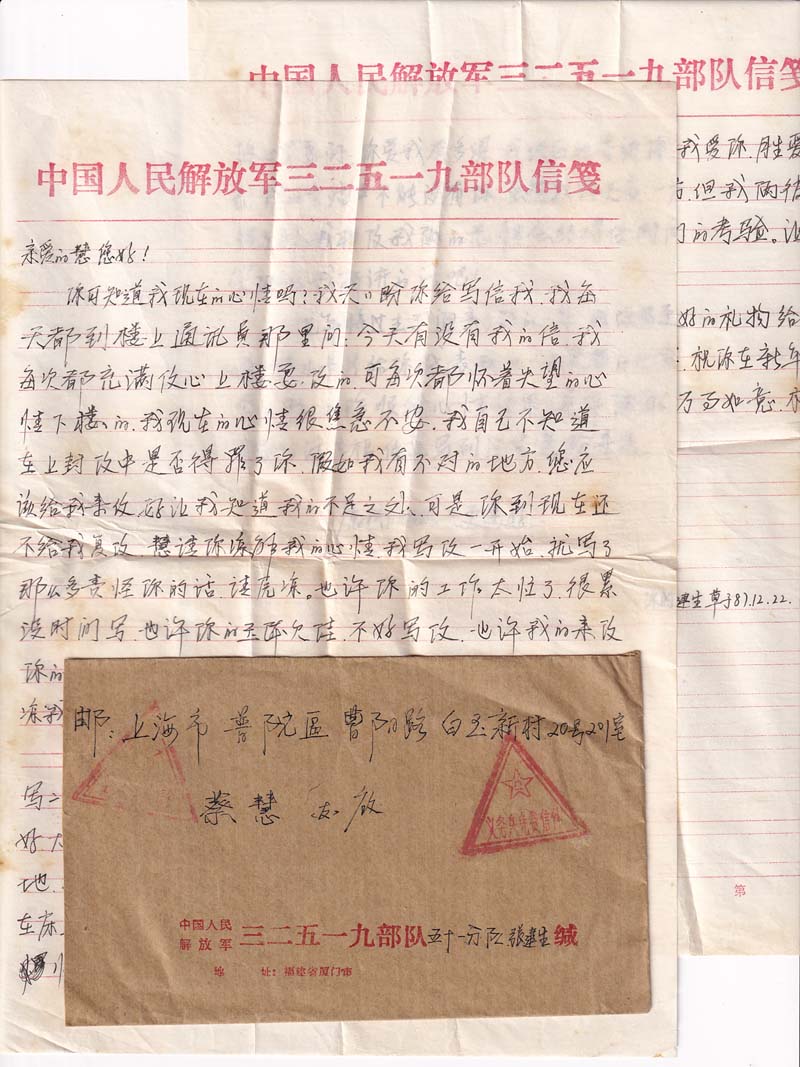 中国人民解放军三二五一九部队信笺
我爱你.胜爱
但我两彼
的考验。
好的礼物给
祝你在新年
万事如意.
建生草于87.12.22.
第
中国人民解放军三二五一九部队信笺
亲爱的慧您好!
你可知道我现在的心情吗?我天〻盼你给写信我.我每
天都到楼上通讯员那里问:今天有没有我的信.我
每次都充满仪心上楼要仪的.可每次都怀着失望的心
情下楼的.我现在的心情很焦急不安.我自己不知道
在上封仪中是否得罪了你.假如我有不对的地方.您应
该给我来仪.好让我知道我的不足之处、可是你到现在还
不给我复仪.慧请你谅解我的心情.我写仪一开始.就写了
那么多责怪你的话.请原谅。也许你的工作太忙了.很累
没时间写.也许你的玉体欠佳.不好写仪.也许我的来仪
你的
谅我
写
好
地.
在床
邮:上海市普陀区曹阳路白玉新村20号201室
蔡慧 启
义务兵免费信件
中国人民
解放军 三二五一九部队五十一分队张建生缄
地 址:福建省厦门市